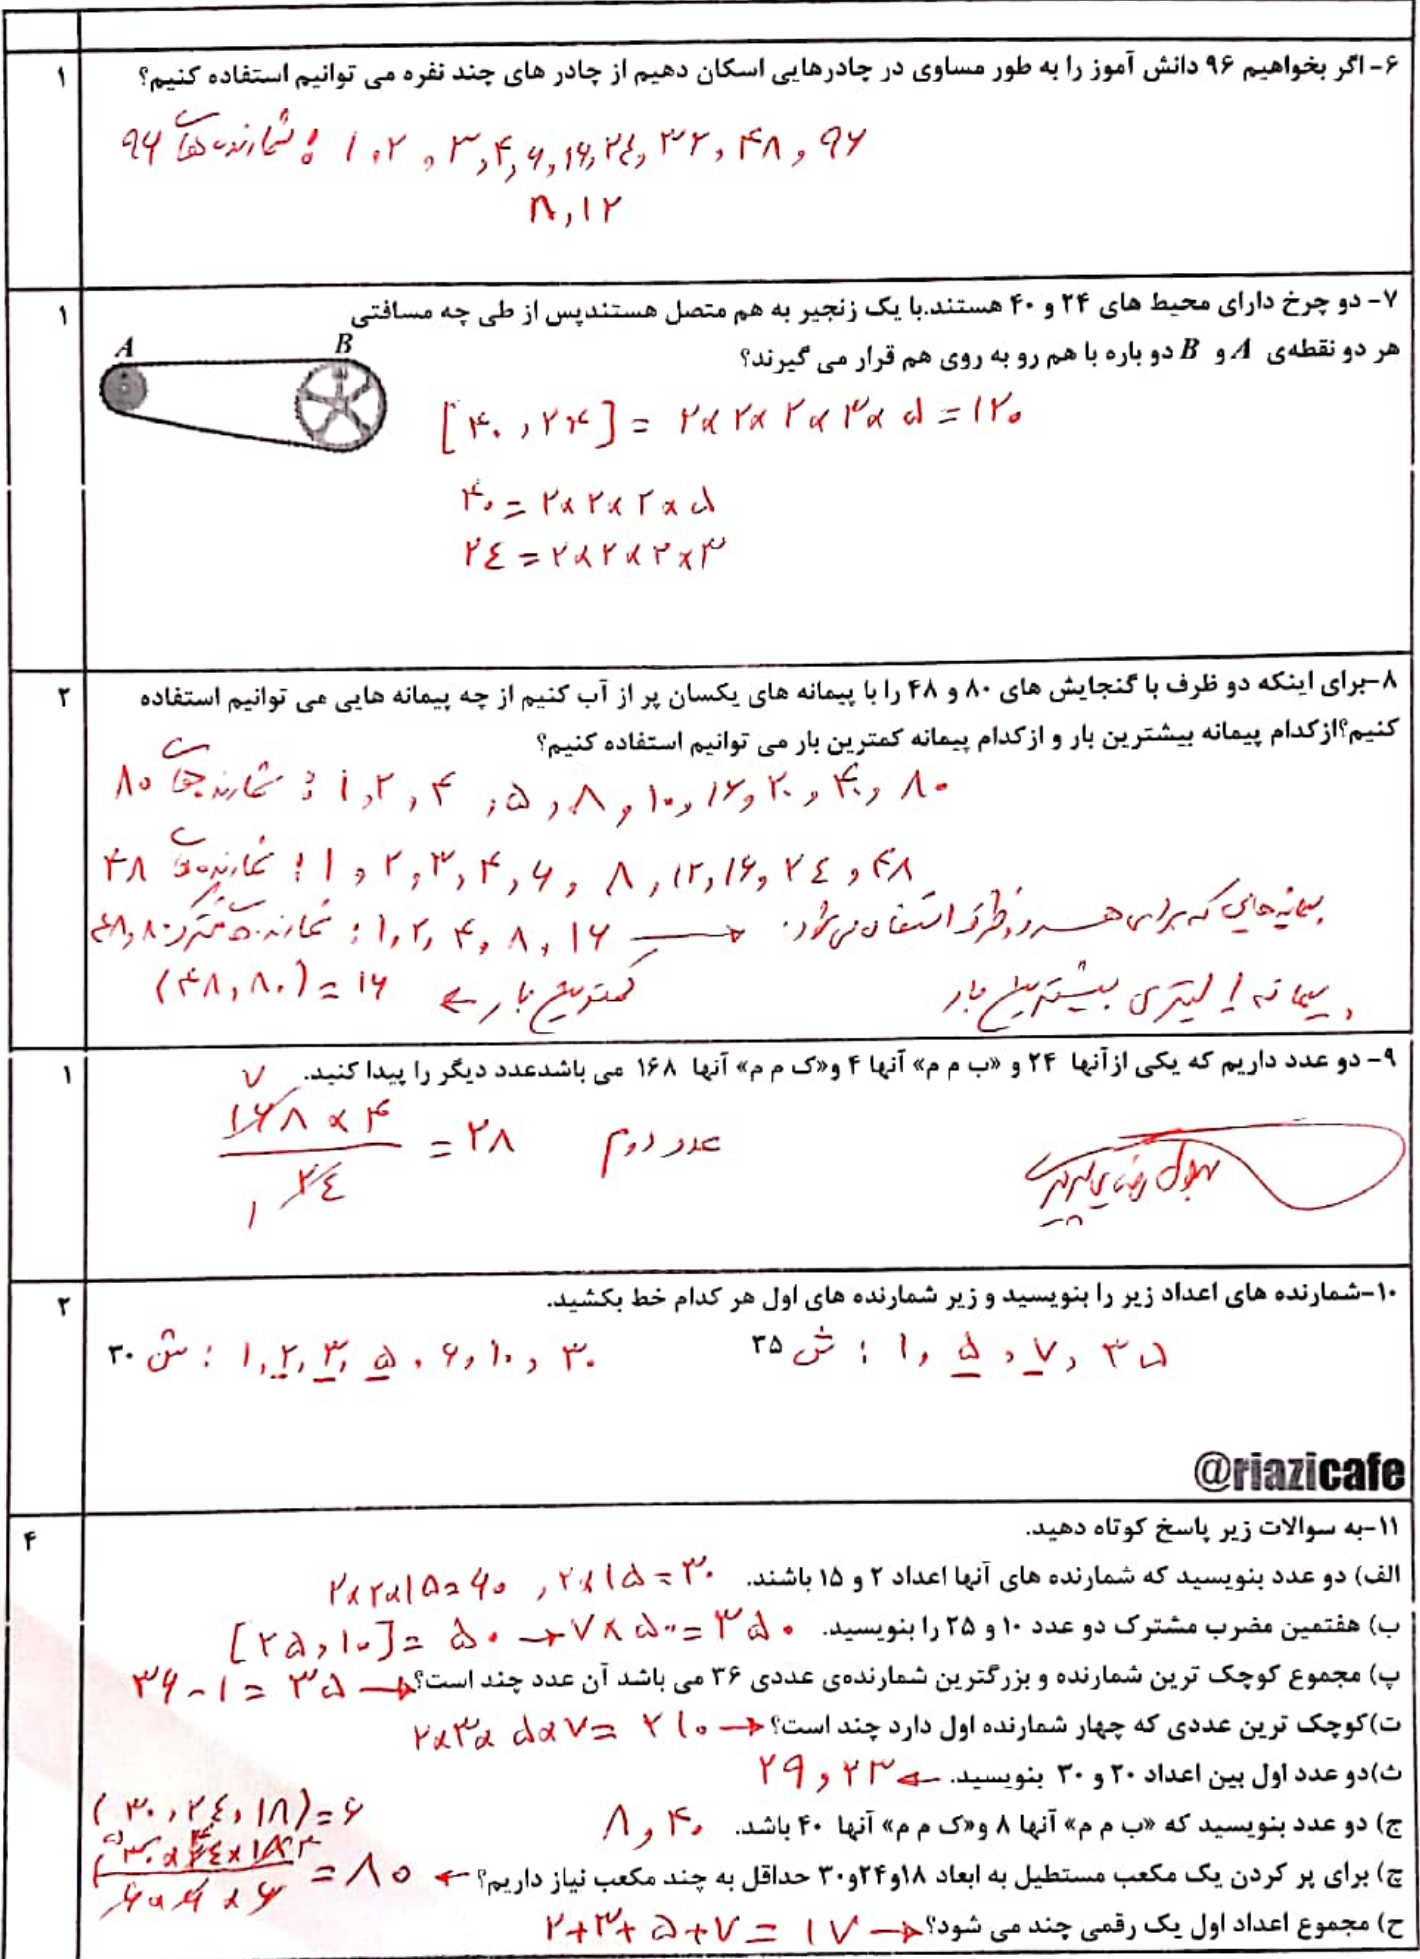 ۶- اگر بخواهیم ۹۶ دانش آموز را به طور مساوی در چادرهایی اسکان دهیم از چادر های چند نفره می توانیم استفاده کنیم؟
۱
شمارنده های ۹۶ : ۱, ۲, ۳, ۴, ۶, ۱۶, ۲۴, ۳۲, ۴۸, ۹۶
۸, ۱۲
۷- دو چرخ دارای محیط های ۲۴ و ۴۰ هستند.با یک زنجیر به هم متصل هستندپس از طی چه مسافتی
۱
هر دو نقطه‌ی A و B دو باره با هم رو به روی هم قرار می گیرند؟
A B
[۴۰, ۲۴] = ۲×۲×۲×۳×۵ = ۱۲۰
۴۰ = ۲×۲×۲×۵
۲۴ = ۲×۲×۲×۳
۸-برای اینکه دو ظرف با گنجایش های ۸۰ و ۴۸ را با پیمانه های یکسان پر از آب کنیم از چه پیمانه هایی می توانیم استفاده
۲
کنیم؟ازکدام پیمانه بیشترین بار و ازکدام پیمانه کمترین بار می توانیم استفاده کنیم؟
شمارنده های ۸۰ : ۱, ۲, ۴, ۵, ۸, ۱۰, ۱۶, ۲۰, ۴۰, ۸۰
شمارنده های ۴۸ : ۱, ۲, ۳, ۴, ۶, ۸, ۱۲, ۱۶, ۲۴, ۴۸
شمارنده های مشترک ۴۸, ۸۰ : ۱, ۲, ۴, ۸, ۱۶ → پیمانه هایی که برای هر دو ظرف استفاده می شود.
(۴۸, ۸۰) = ۱۶ ← کمترین بار
پیمانه ۱ لیتری بیشترین بار
۹- دو عدد داریم که یکی ازآنها ۲۴ و «ب م م» آنها ۴ و«ک م م» آنها ۱۶۸ می باشدعدد دیگر را پیدا کنید.
۱
۷
۱۶۸ × ۴
۲۴
۱
= ۲۸ عدد دوم
۱۰-شمارنده های اعداد زیر را بنویسید و زیر شمارنده های اول هر کدام خط بکشید.
۲
ش ۳۵ : ۱, ۵, ۷, ۳۵
ش ۳۰ : ۱, ۲, ۳, ۵, ۶, ۱۰, ۳۰
@riazicafe
۱۱-به سوالات زیر پاسخ کوتاه دهید.
۴
الف) دو عدد بنویسید که شمارنده های آنها اعداد ۲ و ۱۵ باشند. ۲×۱۵=۳۰ , ۲×۲×۱۵=۶۰
ب) هفتمین مضرب مشترک دو عدد ۱۰ و ۲۵ را بنویسید. [۲۵, ۱۰] = ۵۰ → ۷×۵۰=۳۵۰
پ) مجموع کوچک ترین شمارنده و بزرگترین شمارنده‌ی عددی ۳۶ می باشد آن عدد چند است؟ ۳۶-۱ = ۳۵
ت)کوچک ترین عددی که چهار شمارنده اول دارد چند است؟ ۲×۳×۵×۷= ۲۱۰
ث)دو عدد اول بین اعداد ۲۰ و ۳۰ بنویسید. ← ۲۳ و ۲۹
ج) دو عدد بنویسید که «ب م م» آنها ۸ و«ک م م» آنها ۴۰ باشد. ۸ و ۴۰
(۳۰, ۲۴, ۱۸)=۶
چ) برای پر کردن یک مکعب مستطیل به ابعاد ۱۸و۲۴و۳۰ حداقل به چند مکعب نیاز داریم؟ ←
۵ ۴ ۳
۳۰×۲۴×۱۸
۶×۶×۶
= ۸۰
ح) مجموع اعداد اول یک رقمی چند می شود؟ ۲+۳+۵+۷ = ۱۷